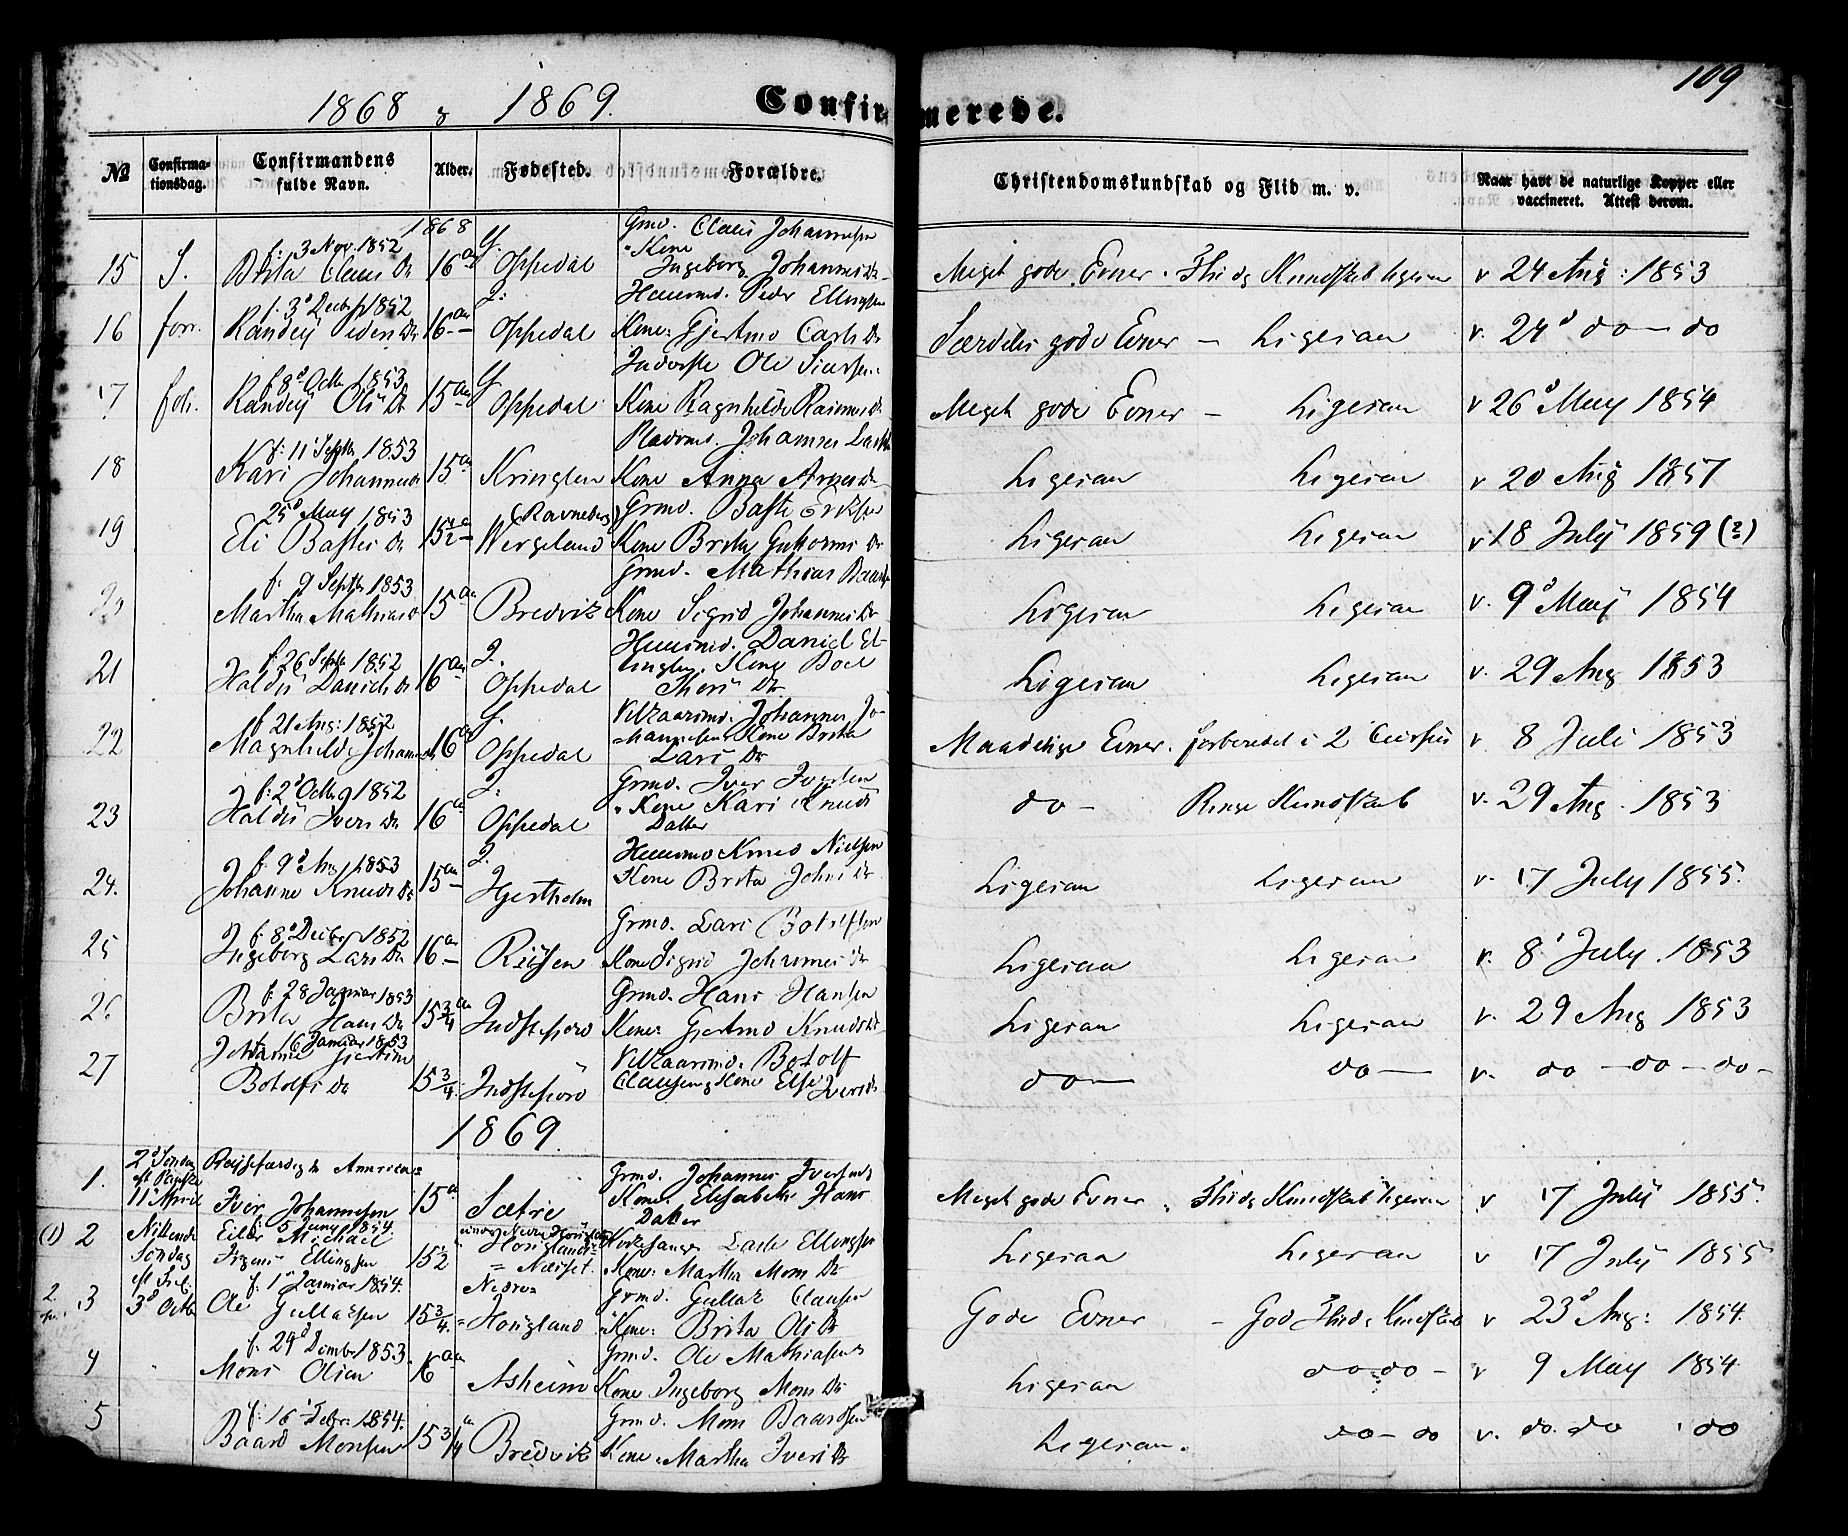 109
1868 & 1869. Confirmerede.
№ Confirmationsdag. Confirmandens fulde Navn. Alder. Fødested. Forældre. Christendomskundskab og Flid m. v. Naar havt de naturlige Kopper eller vaccineret. Attest derom.
1868
15 S. f. 3 Nov. 1852 Brita Claus Dr 16 Y. Oppedal Grmd. Claus Johannesen Kone Ingeborg Johannes Dr Meget gode Evner. Flid og Kundskab ligesaa v 24 Aug: 1853
16 forr. f. 3d Decbr 1852 Randei Peders Dr 16 I: Oppedal Huusmd. Peder Ellingsen Kone: Gjertmo Carls Dr Særdeles gode Evner – Ligesaa v. 24d do – do
17 f. 8d Octbr 1853 Randei Ols Dr 15 Y. Oppedal Ole Kone Ragnhilde Rasmus Dr Meget gode Evner – Ligesaa v 26d May 1854
18 f: 11 Septbr 1853 Kari Johannes Dr 15 Kringlen Pladsmd. Johannes Kone Anna Arnes Dr Ligesaa Ligesaa v 20 Aug 1857
19 25d May 1853 Eli Basties Dr 15½ (Ravneberg) Wergeland Grmd. Basti Eriksen Kone Brita Guttorms Dr Ligesaa Ligesaa v 18 July 1859 (?)
20 f. 9 Septbr 1853 Martha Mathias Dr 15 Bredvik Grmd. Mathias Baards Kone Sigrid Johannes Dr Ligesaa Ligesaa v. 9d May 1854
21 f. 26 Septbr 1852 Haldis Daniels Dr 16 I. Oppedal Huusmd. Daniel Ellingsen. Kone Boel Dr Ligesaa Ligesaa v. 29 Aug 1853
22 f. 21 Aug: 1852 Magnhilde Johannes Dr 16 Y. Oppedal Vilkaarsmd. Johannes Johannesen Kone Brita Lars Dr Maadelige Evner. forberedet i 2 Cursus v 8 Juli 1853
23 f: 2d Octbr 1852 Haldis Ivers Dr 16 I: Oppedal Grmd. Iver Iversen Kone Kari Knuds Datter do – Ringe Kundskab v. 29 Aug. 1853
24. f. 9d Aug 1853 Johanne Knuds Dr 15 I. Hjertholm Huusmd Knud Nielsen Kone Brita Johns Dr Ligesaa Ligesaa v. 17 July 1855.
25 f. 8d Decbr 1852 Ingeborg Lars Dr 16 Riisen Grmd. Lars Botolfsen Kone Sigrid Johannes Dr Ligesaa Ligesaa v. 8d July 1853
26. f. 28 Januar 1853 Brita Hans Dr 15¾ Indstefiord Grmd. Hans Hansen Kone: Gjertmo Knuds Dr Ligesaa Ligesaa v. 29 Aug 1853
27 16 Januar 1853 Johanne Gjertine Botolfs Dr 15¾ Indstefiord Vilkaarsmd. Botolf Clausen, Kone Else Ivers Dr do – do – v. do – do – do –
1869.
1. 2d Søndag eft Paaske 11d April Reisefærdig til America Iver Johannesen 15 Sætre Grmd. Johannes Iversen Kone: Elisabeth Hans Datter Meget gode Evner, Flid og Kundskab ligesaa v 17 July 1855.
(1) 2 Nittende Søndag eft Tref. 3d Octb f. 5 Juny 1854. Eiler Michael Irgens Ellingsen 15½ Høiglands = Næsset. Kirkesanger Lasse Ellingsen Kone: Martha Mons Dr Ligesaa Ligesaa v 17 July 1855
2. 3 f. 1 Januar 1854. Ole Gullaksen 15¾. Nedre= Høigland Grmd. Gullak Clausen Kone: Brita Ols Dr Gode Evner – God Flid og Kundskab v 23d Aug: 1854.
4 f. 24d Decmbr 1853. Mons Olsen 16 Asheim Grmd. Ole Mathiasen Kone Ingeborg Mons Dr Ligesaa do do – v 9 May 1854
5 f. 16 Febr. 1854. Baard Monsen 15¾ Bredvik Grmd. Mons Baardsen Kone: Martha Ivers Dr Ligesaa. do – do v. do. do do